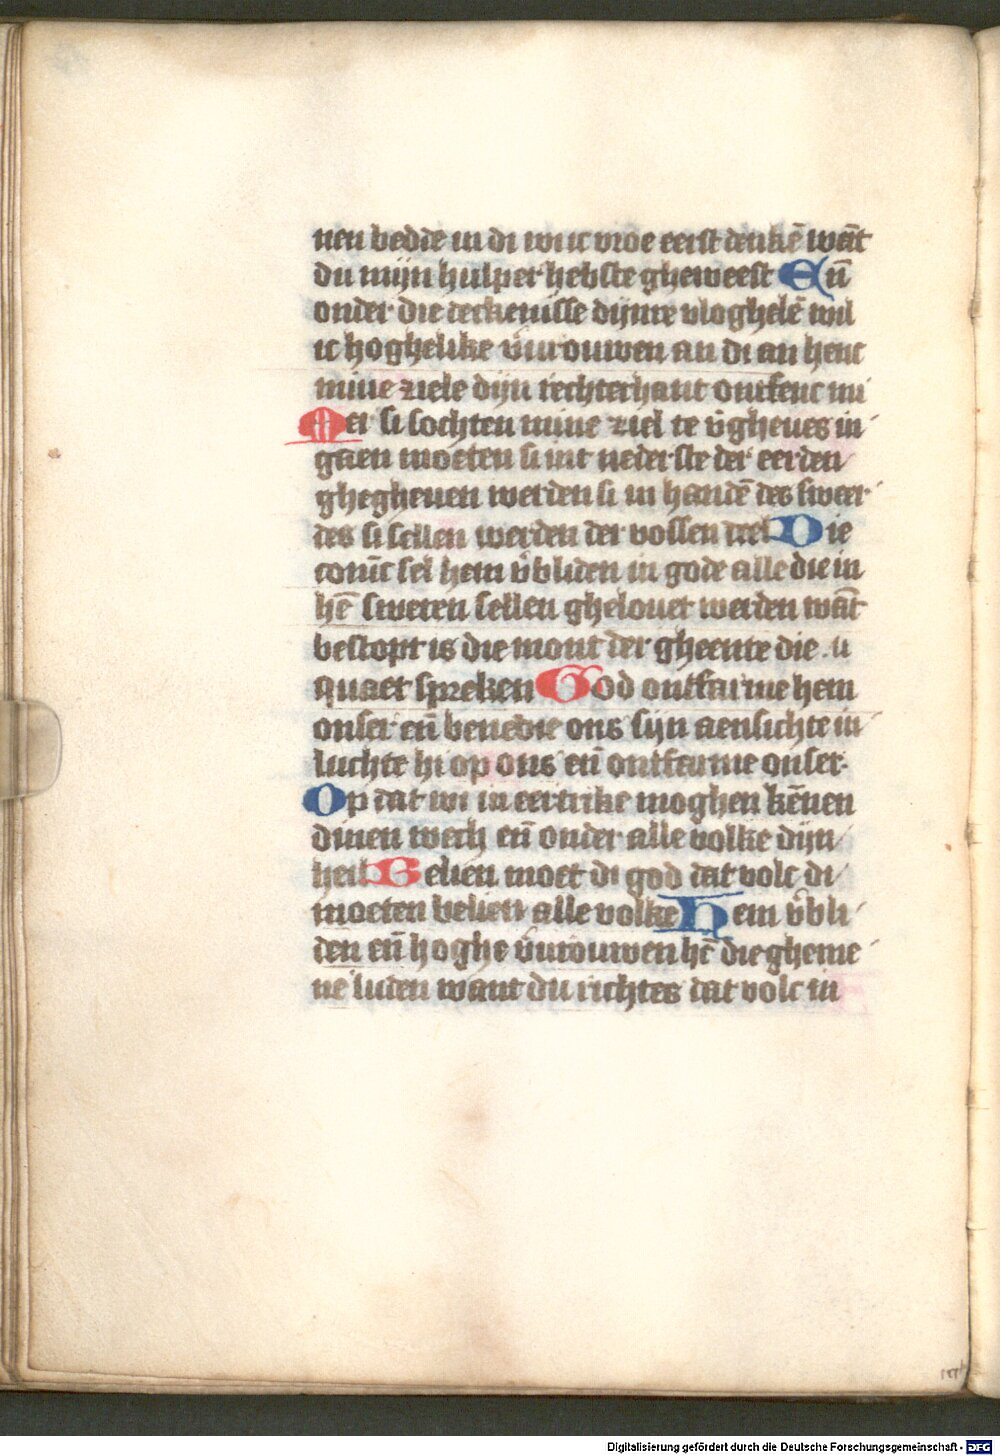 nen bedde in di wil ic vroe eerst denkē wāt
du mijn hulper hebste gheweest Eñ
onder die deckenisse dijnre vloghelē wil
ic hoghelike v̄vrouwen an di an henc
mine ziele dijn rechterhant ontfenc mi
Mer si sochten mine ziel te v̄gheues in
gaen moeten si int nederste der eerden
ghegheuen werden si in handē des sweer
des si sellen werden der vossen deel Die
coninc sel hem v̄bliden in gode alle die in
hē sweren sellen ghelouet werden wāt
bestopt is die mont der gheenre die
quaet spreken God ontfarme hem
onser eñ benedie ons sijn aensichte in
luchte hi op ons eñ ontfarme onser
Op dat wi in eertrike moghen kēnen
dinen wech eñ onder alle volke dijn
heil Belien moet di god dat volc di
moeten belien alle volke Hem v̄bli
den eñ hoghe v̄vrouwen hē die gheme
ne luden want du richtes dat volc in
Digitalisierung gefördert durch die Deutsche Forschungsgemeinschaft - DFG